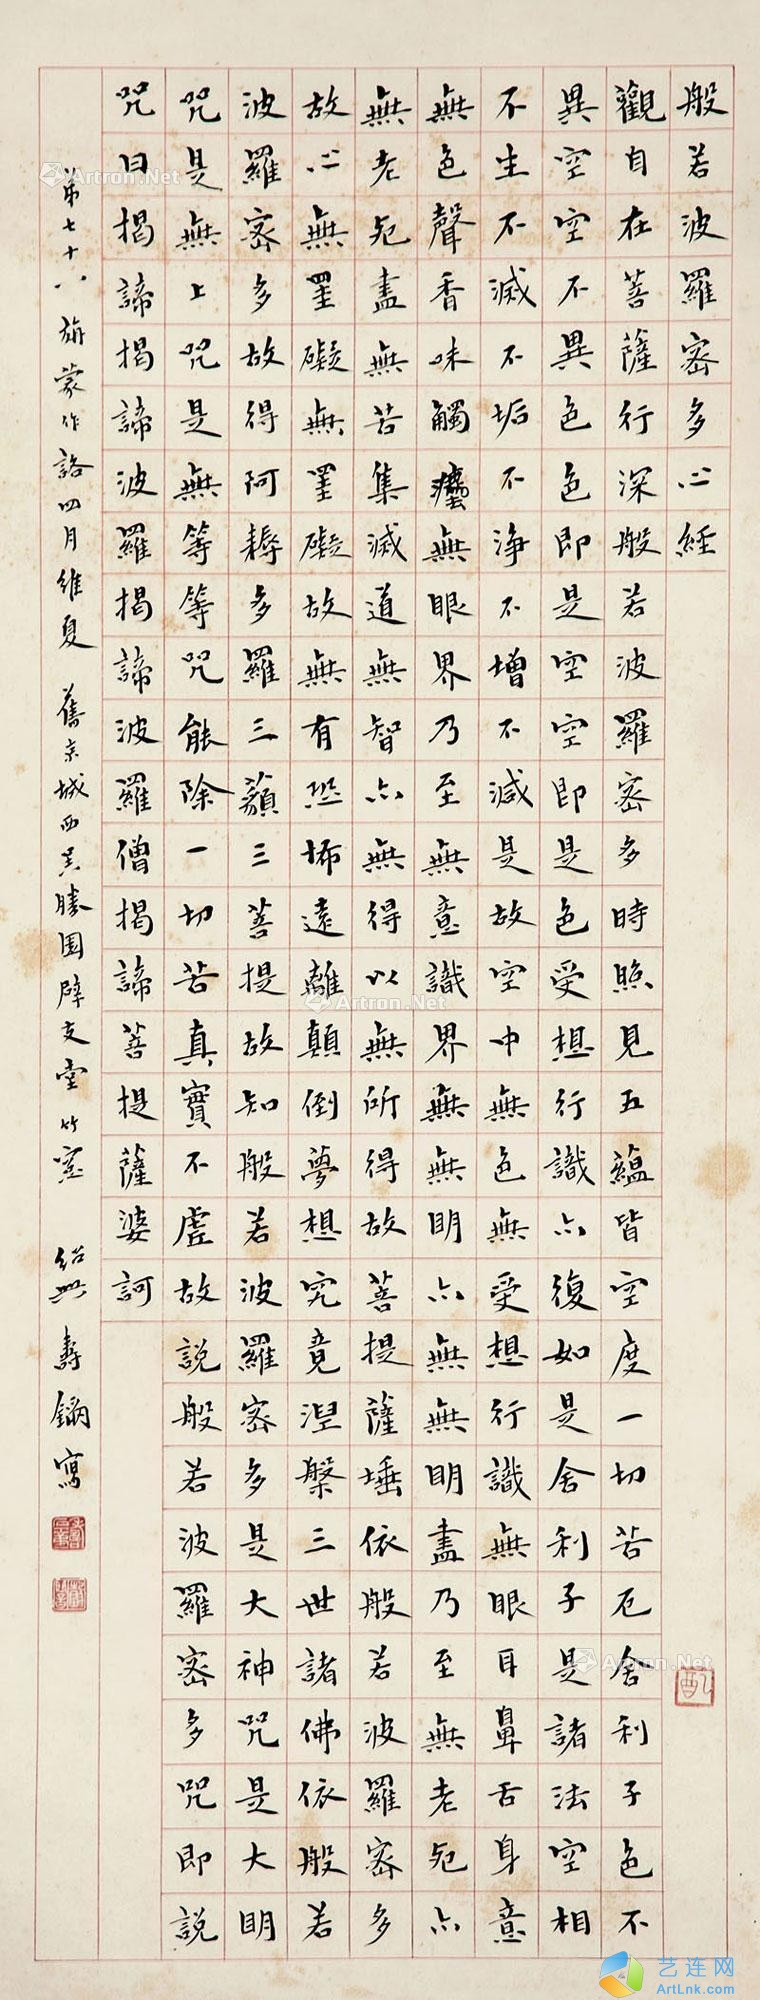 般若波羅密多心經
觀自在菩薩行深般若波羅密多時照見五蘊皆空度一切苦厄舍利子色不
異空空不異色色即是空空即是色受想行識亦復如是舍利子是諸法空相
不生不滅不垢不淨不增不減是故空中無色無受想行識無眼耳鼻舌身意
無色聲香味觸無眼界乃至無意識界無無明亦無無明盡乃至無老死亦
無老死盡無苦集滅道無智亦無得以無所得故菩提薩埵依般若波羅密多
故心無罣礙無罣礙故無有恐怖遠離顛倒夢想究竟涅槃三世諸佛依般若
波羅密多故得阿耨多羅三藐三菩提故知般若波羅密多是大神咒是大明
咒是無上咒是無等等咒能除一切苦真實不虛故說般若波羅密多咒即說
咒曰揭諦揭諦波羅揭諦波羅僧揭諦菩提薩婆訶
第七十八 旃蒙作詻四月維夏 舊京城西勝國辟支堂竹窻 紹興壽鑈寫
Artron.Net
Artron.Net
Artron.Net
Artron.Net
艺连网
ArtLnk.com